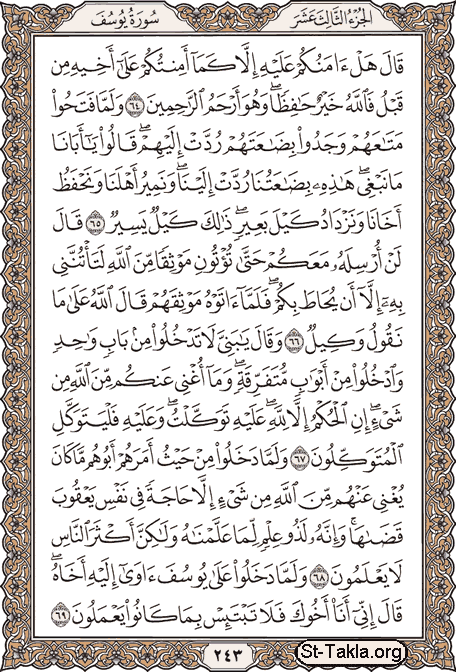 الجزء الثالث عشر
سورة يوسف
قَالَ هَلْ ءَامَنُكُمْ عَلَيْهِ إِلَّا كَمَآ أَمِنتُكُمْ عَلَىٰٓ أَخِيهِ مِن
قَبْلُ فَٱللَّهُ خَيْرٌ حَٰفِظًا ۖ وَهُوَ أَرْحَمُ ٱلرَّٰحِمِينَ ٦٤ وَلَمَّا فَتَحُوا۟
مَتَٰعَهُمْ وَجَدُوا۟ بِضَٰعَتَهُمْ رُدَّتْ إِلَيْهِمْ ۖ قَالُوا۟ يَٰٓأَبَانَا
مَا نَبْغِى ۖ هَٰذِهِۦ بِضَٰعَتُنَا رُدَّتْ إِلَيْنَا ۖ وَنَمِيرُ أَهْلَنَا وَنَحْفَظُ
أَخَانَا وَنَزْدَادُ كَيْلَ بَعِيرٍ ۖ ذَٰلِكَ كَيْلٌ يَسِيرٌ ٦٥ قَالَ
لَنْ أُرْسِلَهُۥ مَعَكُمْ حَتَّىٰ تُؤْتُونِ مَوْثِقًا مِّنَ ٱللَّهِ لَتَأْتُنَّنِى
بِهِۦٓ إِلَّآ أَن يُحَاطَ بِكُمْ ۖ فَلَمَّآ ءَاتَوْهُ مَوْثِقَهُمْ قَالَ ٱللَّهُ عَلَىٰ مَا
نَقُولُ وَكِيلٌ ٦٦ وَقَالَ يَٰبَنِىَّ لَا تَدْخُلُوا۟ مِنۢ بَابٍ وَٰحِدٍ
وَٱدْخُلُوا۟ مِنْ أَبْوَٰبٍ مُّتَفَرِّقَةٍ ۖ وَمَآ أُغْنِى عَنكُم مِّنَ ٱللَّهِ مِن
شَىْءٍ ۖ إِنِ ٱلْحُكْمُ إِلَّا لِلَّهِ ۖ عَلَيْهِ تَوَكَّلْتُ ۖ وَعَلَيْهِ فَلْيَتَوَكَّلِ
ٱلْمُتَوَكِّلُونَ ٦٧ وَلَمَّا دَخَلُوا۟ مِنْ حَيْثُ أَمَرَهُمْ أَبُوهُم مَّا كَانَ
يُغْنِى عَنْهُم مِّنَ ٱللَّهِ مِن شَىْءٍ إِلَّا حَاجَةً فِى نَفْسِ يَعْقُوبَ
قَضَىٰهَا ۚ وَإِنَّهُۥ لَذُو عِلْمٍ لِّمَا عَلَّمْنَٰهُ وَلَٰكِنَّ أَكْثَرَ ٱلنَّاسِ
لَا يَعْلَمُونَ ٦٨ وَلَمَّا دَخَلُوا۟ عَلَىٰ يُوسُفَ ءَاوَىٰٓ إِلَيْهِ أَخَاهُ ۖ
قَالَ إِنِّىٓ أَنَا۠ أَخُوكَ فَلَا تَبْتَئِسْ بِمَا كَانُوا۟ يَعْمَلُونَ ٦٩
٢٤٣
St-Takla.org